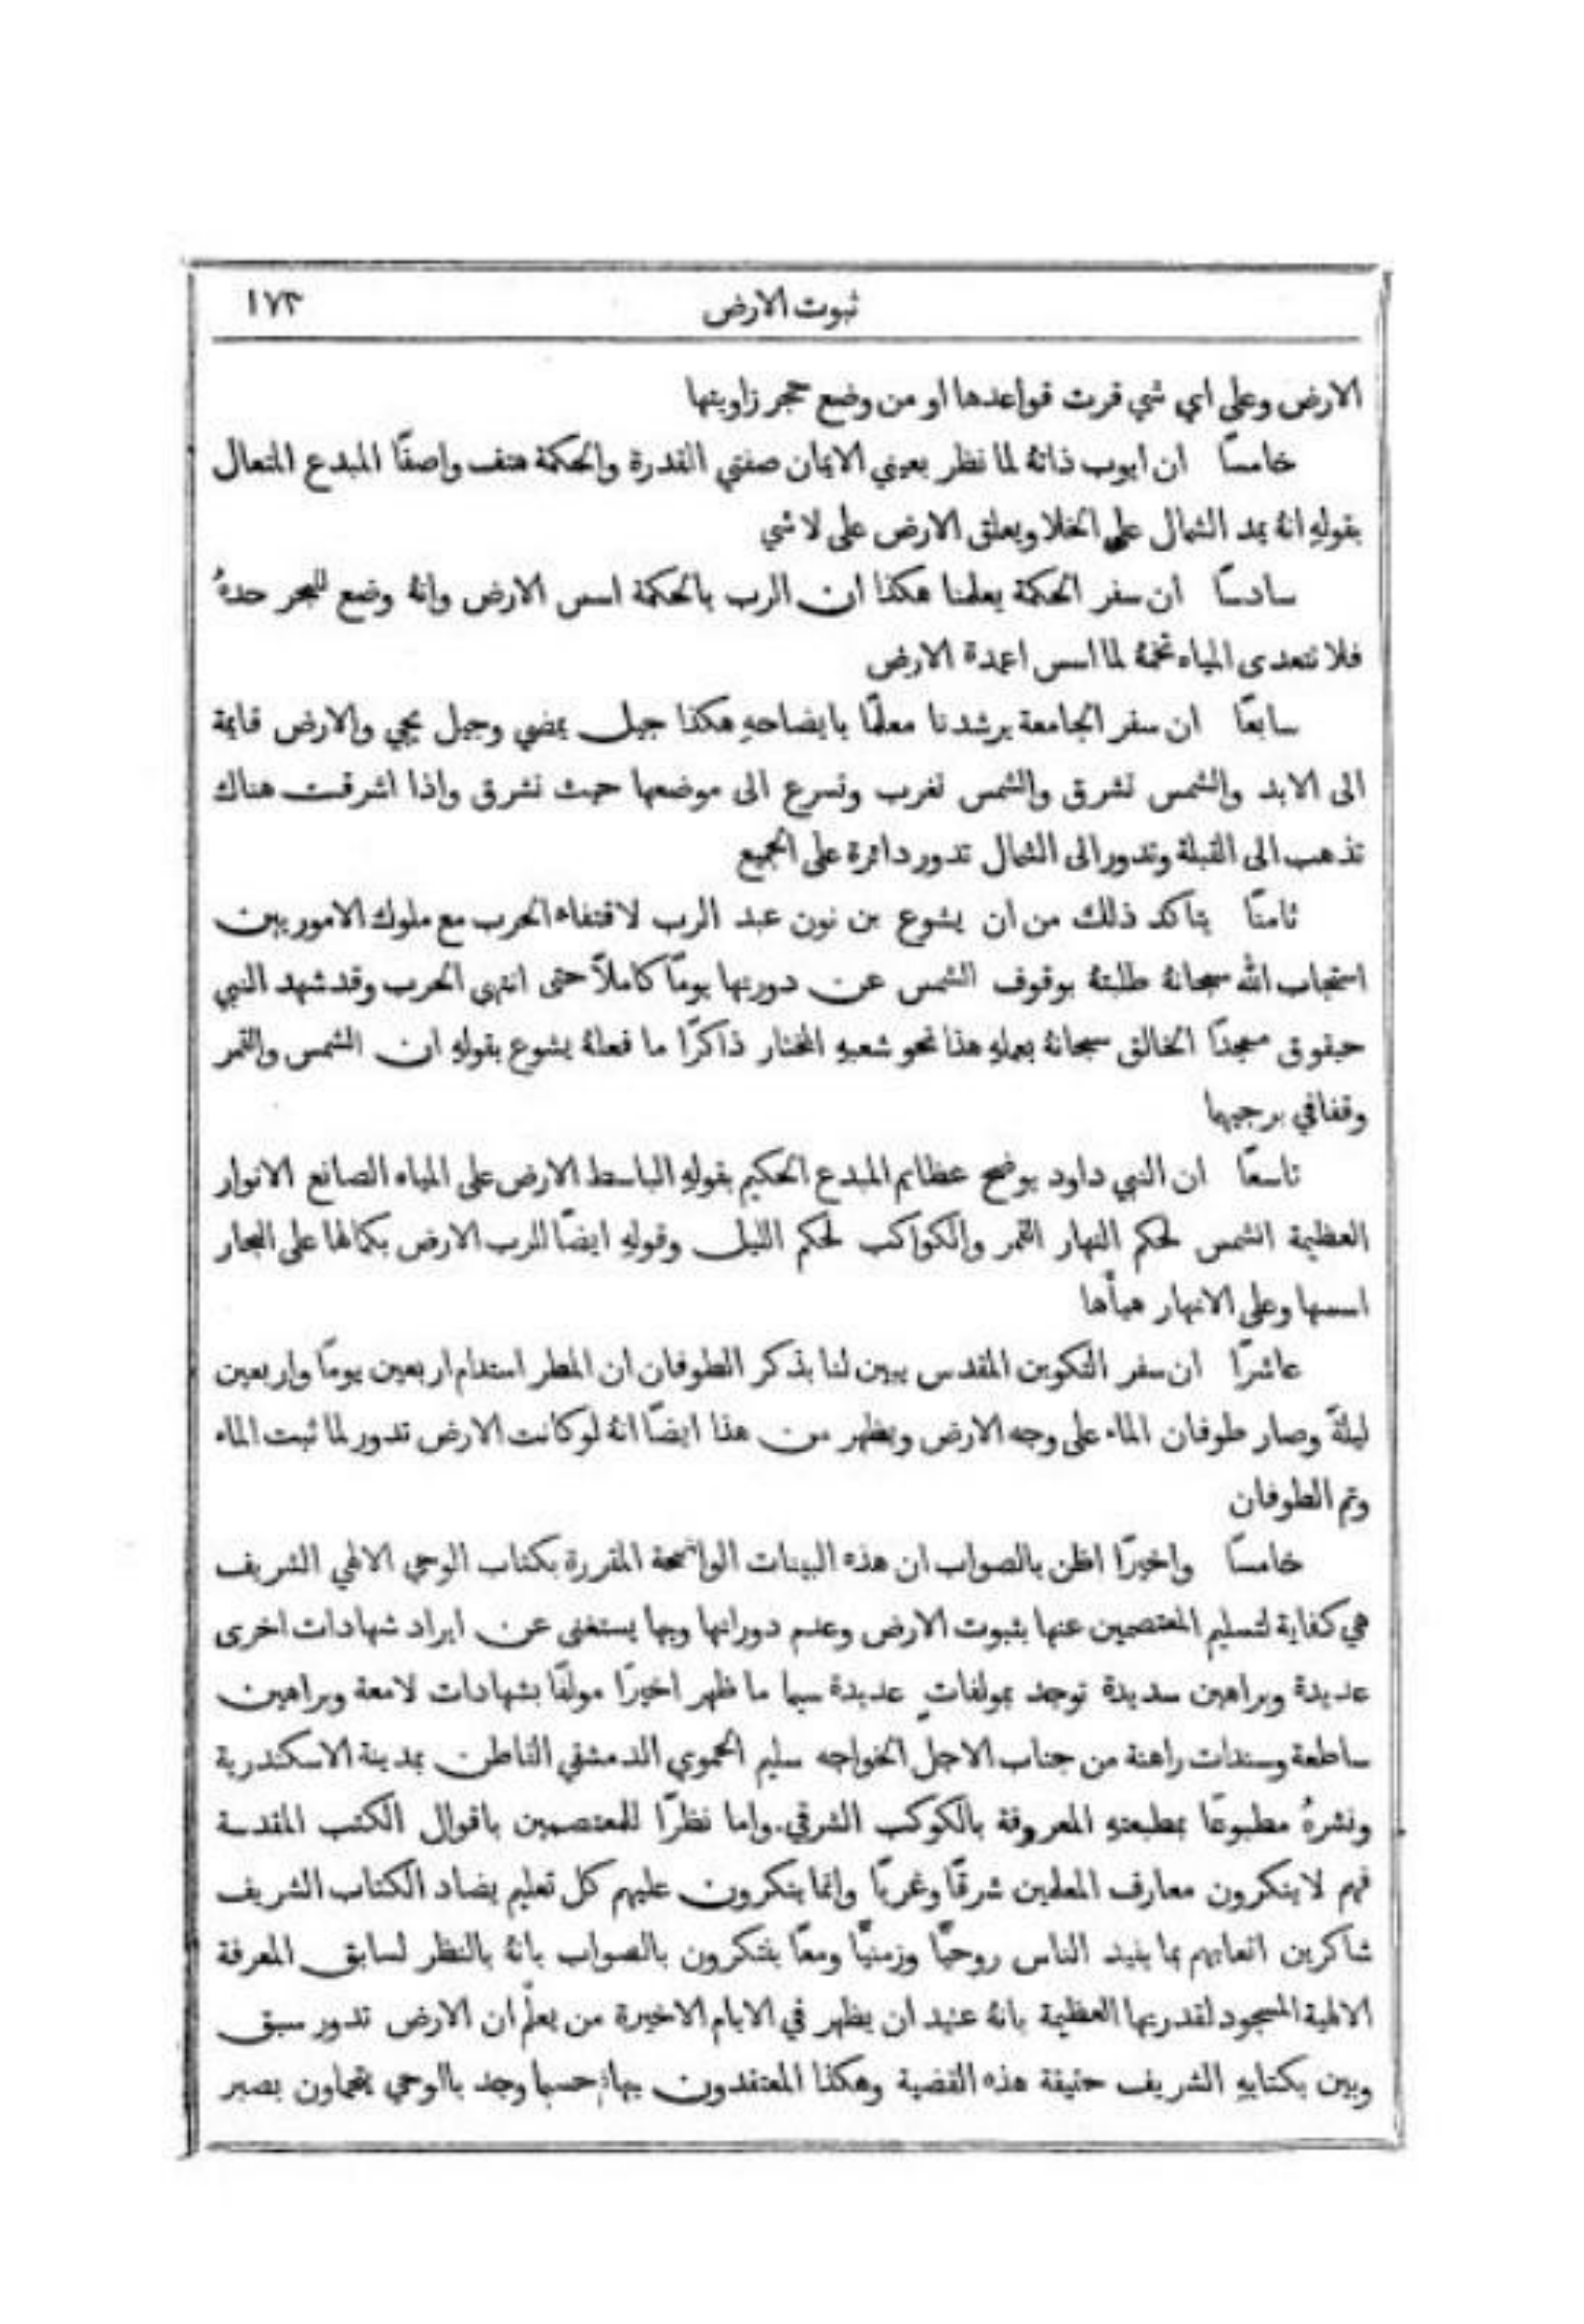 ثبوت الارض ١٧٣
الارض وعلى اي شي قرت قواعدها او من وضع حجر زاويتها
خامسًا ان ايوب ذاتهُ لما نظر بعيني الايمان صفتي القدرة والحكمة هتف واصفًا المبدع المتعال
بقولهِ انهُ يمد الشمال على الخلا ويعلق الارض على لا شي
سادسًا ان سفر الحكمة يعلمنا هكذا ان الرب بالحكمة اسس الارض وانهُ وضع للبحر حدهُ
فلا تتعدى المياه تخمهُ لما اسس اعمدة الارض
سابعًا ان سفر الجامعة يرشدنا معلمًا بايضاحهِ هكذا جيل يمضي وجيل يجي والارض قايمة
الى الابد والشمس تشرق والشمس تغرب وتسرع الى موضعها حيث تشرق واذا اشرقت هناك
تذهب الى القبلة وتدور الى الشمال تدور دائرة على الجميع
ثامنًا يتاكد ذلك من ان يشوع بن نون عبد الرب لاقتفاه الحرب مع ملوك الاموريين
استجاب الله سبحانهُ طلبتهُ بوقوف الشمس عن دورتها يومًا كاملًا حتى انتهى الحرب وقد شهد النبي
حبقوق ممجدًا الخالق سبحانهُ بعملهِ هذا نحو شعبهِ المختار ذاكرًا ما فعلهُ يشوع بقولهِ ان الشمس والقمر
وقفا في برجيهما
تاسعًا ان النبي داود يوضح عظايم المبدع الحكيم بقولهِ الباسط الارض على المياه الصانع الانوار
العظيمة الشمس لحكم النهار القمر والكواكب لحكم الليل وقولهِ ايضًا للرب الارض بكمالها على البحار
اسسها وعلى الانهار هيأها
عاشرًا ان سفر التكوين المقدس يبين لنا بذكر الطوفان ان المطر استدام اربعين يومًا واربعين
ليلةً وصار طوفان الماء على وجه الارض ويظهر من هذا ايضًا انهُ لو كانت الارض تدور لما ثبت الماء
وتم الطوفان
خامسًا واخيرًا اظن بالصواب ان هذه البينات الواضحة المقررة بكتاب الوحي الالهي الشريف
هي كفاية لتسليم المعتصمين عنها بثبوت الارض وعدم دورانها وبها يستغنى عن ايراد شهادات اخرى
عديدة وبراهين سديدة توجد بمولفاتٍ عديدة سيما ما ظهر اخيرًا مولفًا بشهادات لامعة وبراهين
ساطعة وسندات راهنة من جناب الاجل الخواجه سليم الحموي الدمشقي القاطن بمدينة الاسكندرية
ونشرهُ مطبوعًا بمطبعتهِ المعروفة بالكوكب الشرقي. واما نظرًا للمعتصمين باقوال الكتب المقدسة
فهم لا ينكرون معارف المعلمين شرقًا وغربًا وانما ينكرون عليهم كل تعليم يضاد الكتاب الشريف
شاكرين اتعابهم بما يفيد الناس روحيًّا وزمنيًّا ومعًا يفتكرون بالصواب بانهُ بالنظر لسابق المعرفة
الالهية المسجود لقدرتها العظيمة بانهُ عتيد ان يظهر في الايام الاخيرة من يعلّم ان الارض تدور سبق
وبين بكتابهِ الشريف حقيقة هذه القضية وهكذا المعتقدون بها حسبما وجد بالوحي يتحملون بصبر